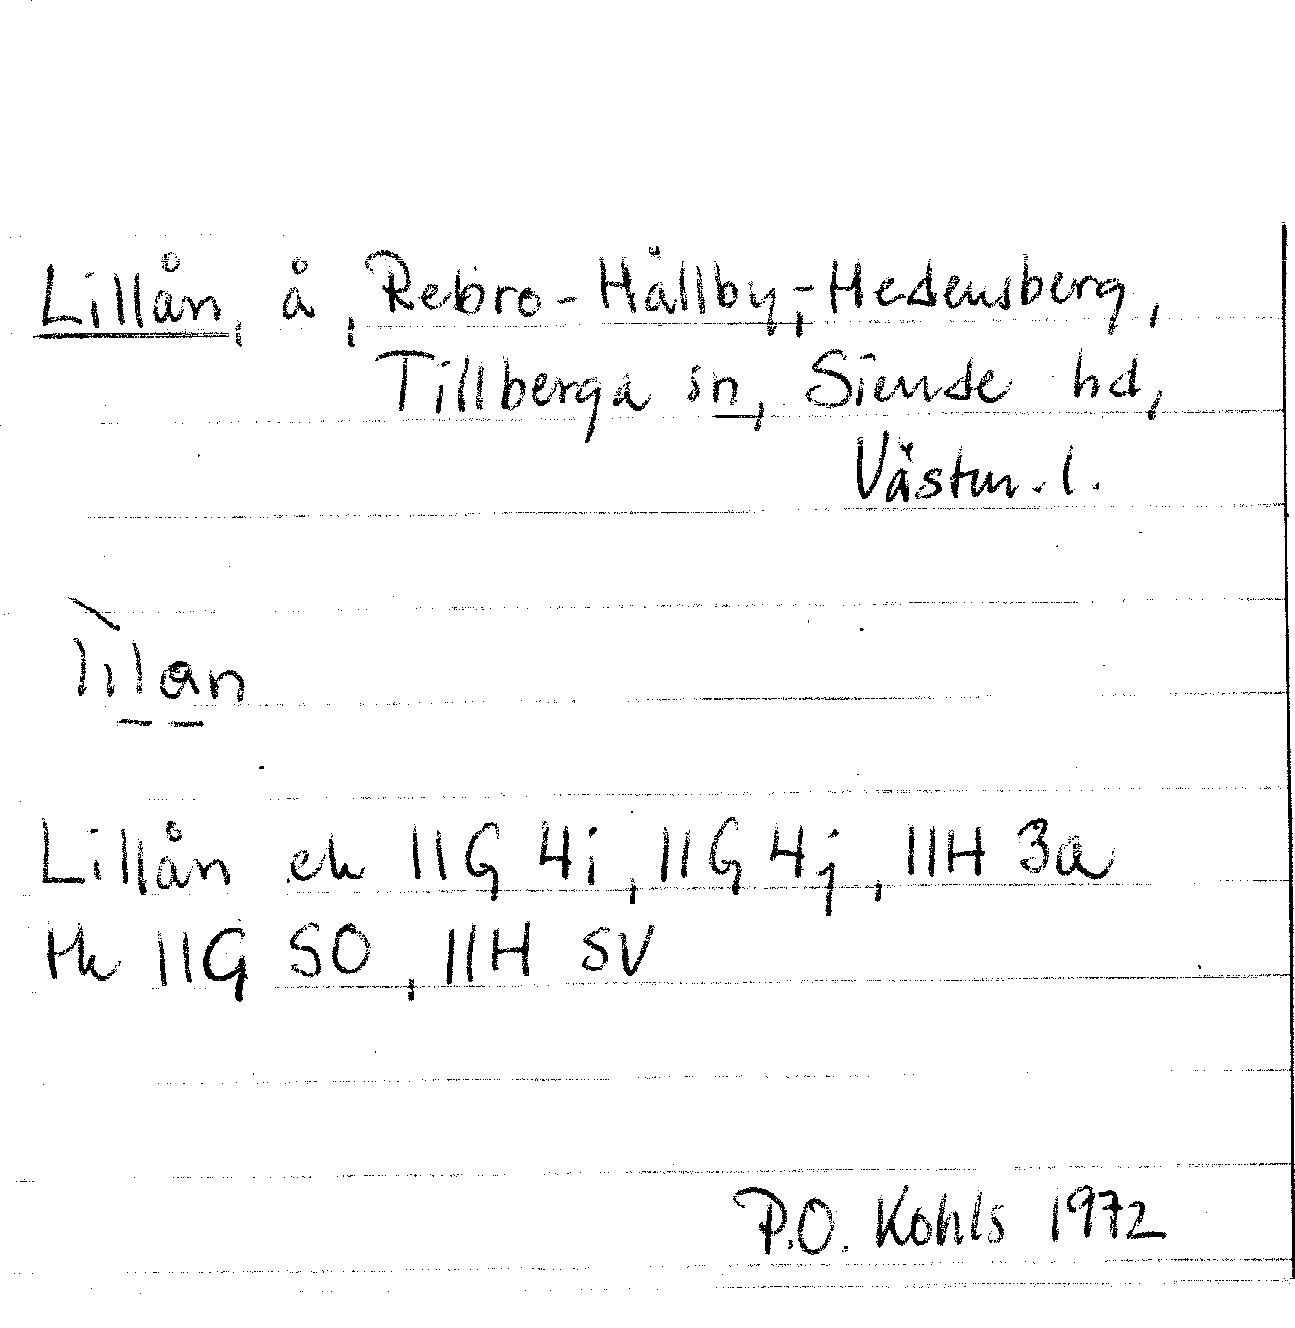 Lillån, å, Rebro-Hällby,-Hedensberg,
Tillberga sn, Siende hd,
Västm. l.
Lillån ek 11G 4i, 11G 4j, 11H 3a
Hk 11G SO, 11H SV
P.O. Kohls 1972